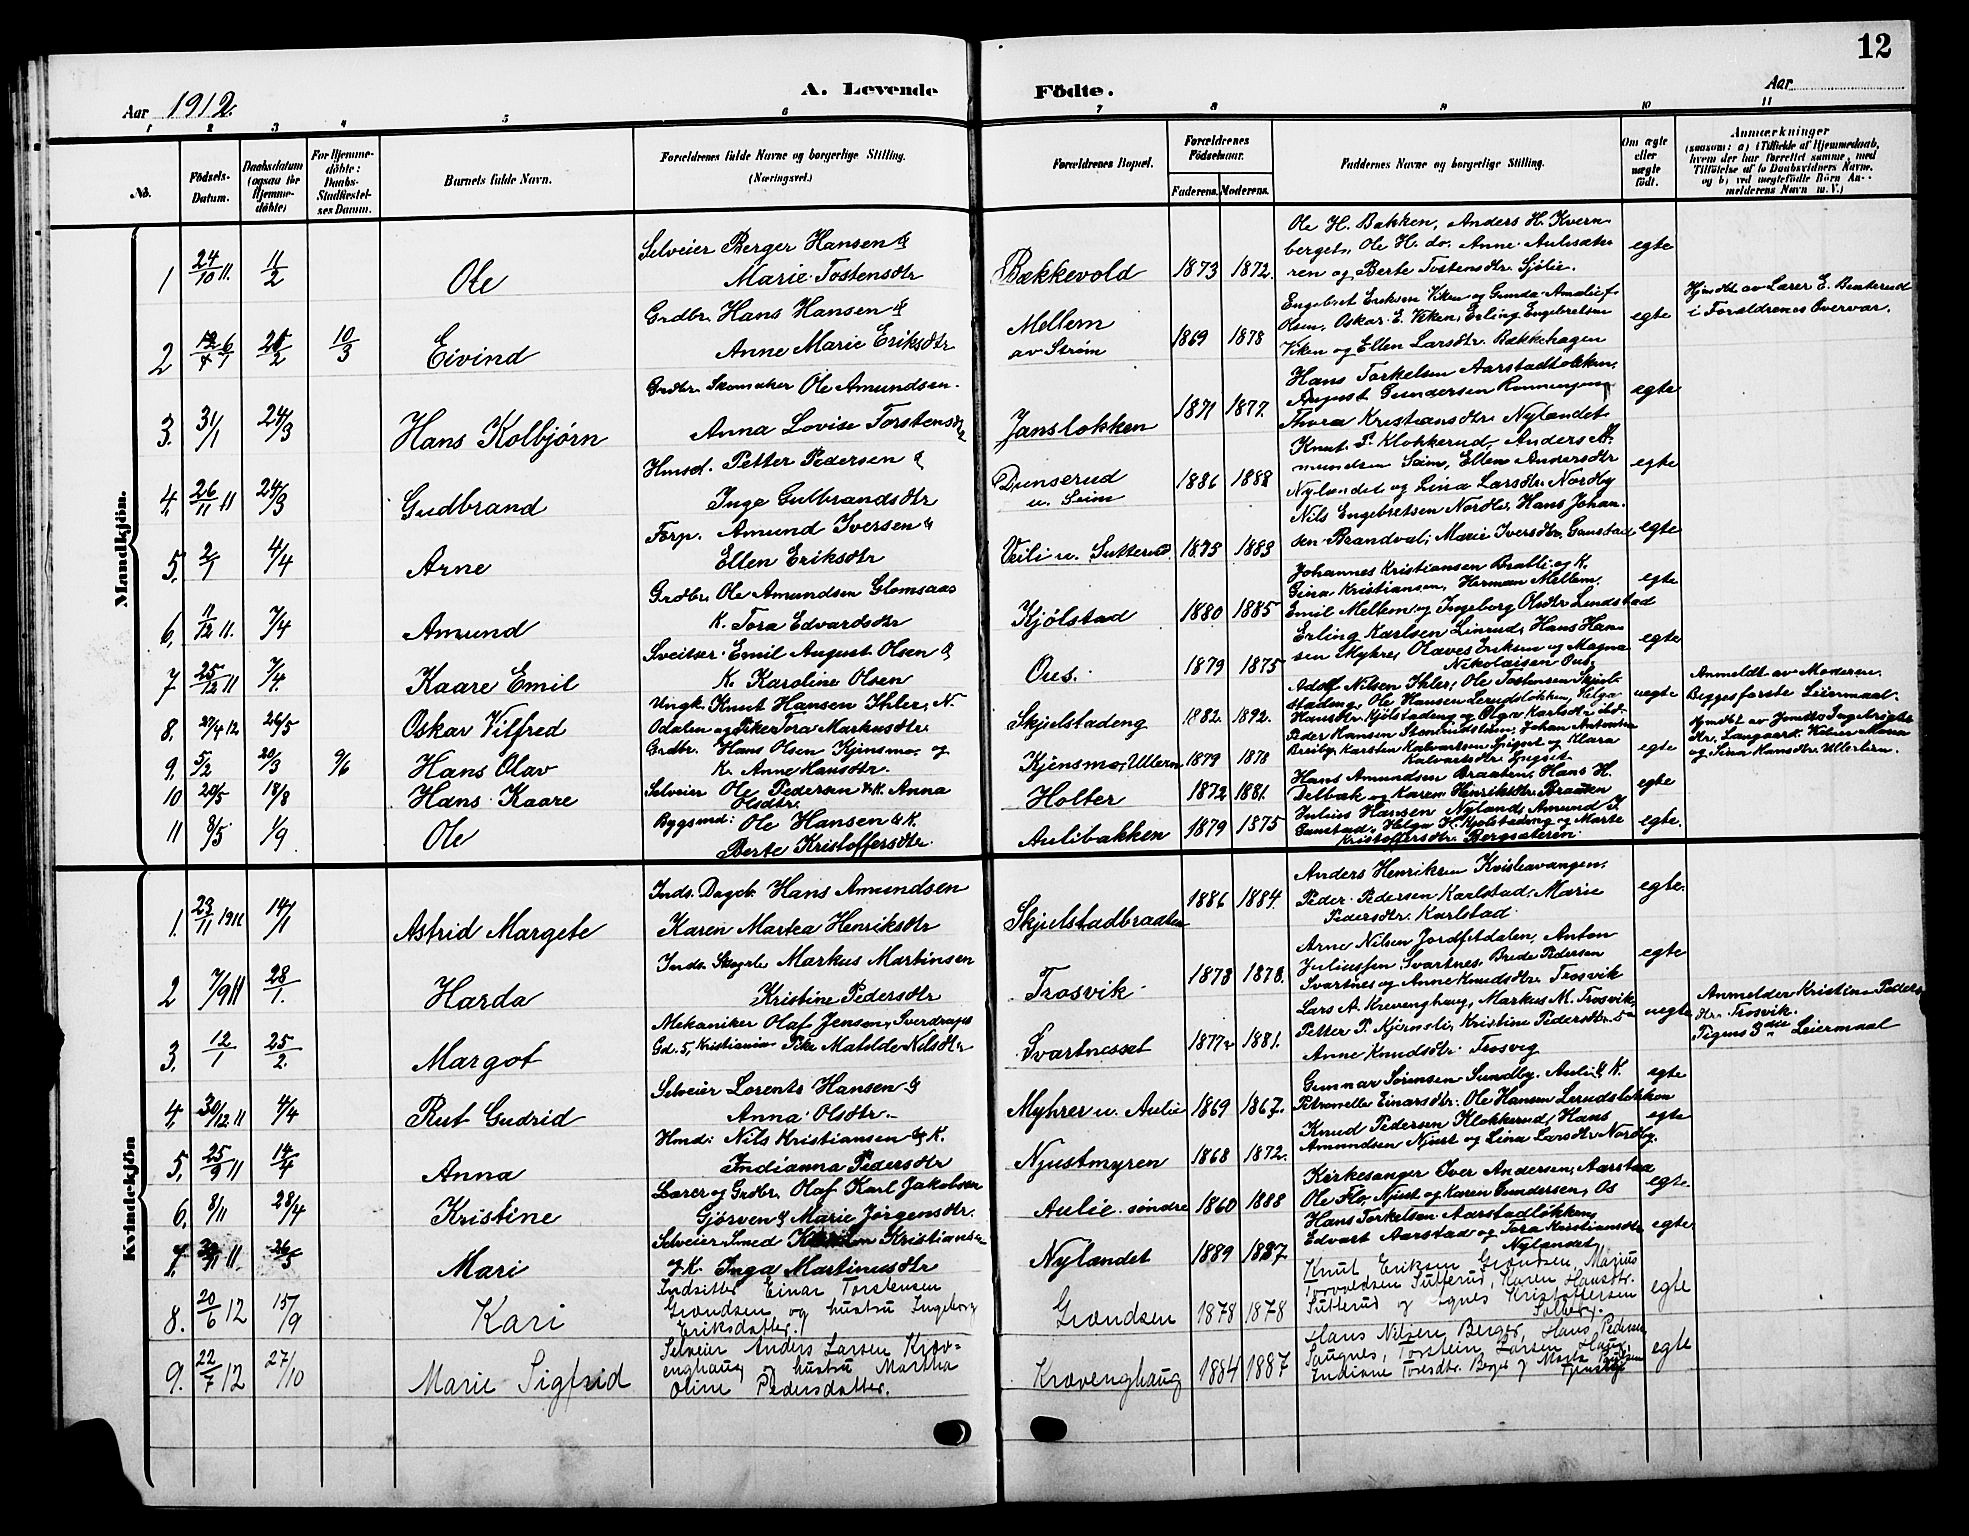 12
Aar 1912.
A. Levende Födte.
Aar
1 2 3 4 5 6 7 8 9 10 11
No.
Födsels-Datum.
Daabsdatum (ogsaa for Hjemmedöbte)
For Hjemmedöbte: Daabs-Stadfæstelses Datum.
Barnets fulde Navn.
Forældrenes fulde Navne og borgerlige Stilling. (Næringsvei.)
Forældrenes Bopæl.
Forældrenes Födselsaar.
Faderens. Moderens.
Faddernes Navne og borgerlige Stilling.
Om ægte eller uægte födt.
Anmærkninger (saasom: a) i Tilfælde af Hjemmedaab, hvem der har forrettet samme, med Tilföielse af to Daabsvidners Navne. og b) ved uægtefödte Börn Anmelderens Navn m. V.)
Mandkjön.
1 24/10 11. 11/2 Ole
Selveier Berger Hansen &
Marie Tostensdtr
Bækkevold 1873 1872.
Ole H. Bakken, Anders H. Kvern-
berget, Ole H. do. Anne Aulisæte-
ren og Berte Tostensdtr. Sjølie.
egte
2 6/1 25/2 10/3 Eivind
Grdbr. Hans Hansen &
Anne Marie Eriksdtr
Mellem
av Strøm
1869 1878
Engebret Eriksen Viken og Gunda Amalie f.
Olsen, Oskar E. Viken, Erling Engebretsen
Viken og Ellen Larsdtr. Bækkehagen
egte
Hjmdbt av Lærer E. Benterud
i Foreldrenes Overvær.
3. 31/1 24/3 Hans Kolbjørn
Grdbr. Skomaker Ole Amundsen.
Anna Lovise Torstensdtr
Jansløkken 1871 1877.
Hans Torkelsen Aarstadløkken,
August Gundersen Rønningen,
Thora Kristiansdtr. Nylandet
egte
4. 26/11 11 24/3 Gudbrand
Hmsd. Petter Pedersen &
Inge Gulbrandsdtr
Dunserud
u. Seim
1886 1888
Knut P. Klokkerud, Anders A-
mundsen Seim, Ellen Andersdtr
Nylandet og Lina Larsdtr. Nordby
egte
5. 2/1 4/4 Arne
Forp. Amund Iversen &
Ellen Eriksdtr
Veili u. Sutterud. 1875 1883
Nils Engebretsen Nordli, Hans Johan-
sen Brandval, Marie Iversdtr. Gaustad
egte
6. 11/12 11. 7/4 Amund
Grdbr. Ole Amundsen Glomsaas
K. Tora Edvardsdtr
Kjölstad 1880 1885
Johannes Kristiansen Brabli og K.
Gina Kristiansen, Herman Mellem,
Emil Mellem og Ingeborg Olsdtr Lundstad
egte
7 25/12 11 7/4. Kaare Emil
Sveitser Emil August Olsen &
K. Karoline Olsen
Ous. 1879 1875
Erling Karlsen Linrud, Hans Han-
sen Myhre, Olaves Eriksen og Magna
Nikolaisen Ous
egte
8. 27/4 12 26/5 Oskar Vilfred
Ungk. Knut Hansen Ihler, N.
Odalen og Pike Tora Markusdtr.
Skjelstadeng 1882. 1892.
Adolf Nilsen Ihler, Ole Tostensen Skjel-
stadeng, Ole Hansen Lerudsløkken, Helga
Hansdtr. Kjölstadeng og Olga Karlsdtr
uegte
Anmeldt av Moderen.
Begges første Leiermaal.
9. 5/2 20/3 9/6 Hans Olav
Grdbr. Hans Olsen Kjensmo og
K. Anne Hansdtr.
Kjensmo, Ullern 1879 1878
Peder Hansen Johan Antonsen
Breiby, Karsten Kalvartsen Lyset og Klara
Kalvartsdtr. Lyset
egte
Hjmdbt av Jordm. Ingebrigts-
dtr. Langaard. Vidner Maria
og Lina Hansdtr. Ullerlien.
10 20/5 18/8 Hans Kaare
Selveier Ole Pedersen & K. Anna
Olsdtr.
Holter 1872 1881.
Hans Amundsen Braaten, Hans H.
Delbæk og Karen Henriksdtr. Braaten
egte
11 8/5 1/9 Ole
Bygsmd: Ole Hansen & K.
Berte Kristoffersdtr.
Aulibakken 1879 1875
Julius Hansen Nyland, Amund I.
Gaustad, Helga H. Kjølstadeng og Marte
Kristoffersdtr. Bergsæteren
egte.
Kvindekjön
1. 23/11 1911 14/1 Astrid Margete
Inds. Dagarb. Hans Amundsen
Karen Martea Henriksdtr
Skjelstadbraaten 1886 1884.
Anders Henriksen Kvisleavangen,
Peder Pedersen Karlstad, Marie
Pedersdtr. Karlstad.
egte.
2 7/9 11 28/1. Harda
Inds. Skogarb. Markus Martinsen
Kristine Pedersdtr
Trosvik 1873 1878.
Arne Nilsen Jordfetdalen, Anton
Juliussen Svartnes, Brede Pedersen
Svartnes og Anne Knudsdtr. Trosvik
egte
3. 12/1 25/2. Margot
Mekaniker Olaf Jensen, Sverdrups
Gd. 5, Kristiania Pike Matilde Nilsdtr
Svartnesset 1877 1881.
Lars A. Krevenghaug, Markus M. Trosvik,
Petter P. Kjernsli, Kristine Pedersdtr.
Anne Knudsdtr. Trosvig
uegte
Anmelder Kristine Peders-
dtr. Trosvik.
Pigens 3die Leiermaal
4. 30/12 11 4/4 Rut Gudrid
Selveier Lorents Hansen &
Anna Olsdtr.
Myhrer u. Aulie 1869 1867.
Gunnar Sørensen Sundby. Auli & K.
Petronelle Einarsdtr. Ole Hansen Lerudsløkken
egte
5. 25/9 11 14/4 Anna
Hmd: Nils Kristiansen & K.
Indianna Pedersdtr
Njustmyren 1868 1872.
Knud Pedersen Klokkerud, Hans
Amundsen Njust og Lina Larsdtr Nordby.
egte
6. 8/11 28/4 Kristine
Lærer og Grdbr. Olaf Karl Jakobsen
Gjörven & Marie Jørgensdtr.
Aulie søndre 1860 1888
Kirkesanger Over Andersen, Aarstad
Ole Flor, Njust og Karen Gundersen, Os
egte.
7. 11. 26/5 Mari
Selveier Smed Kristiansen
& K. Inga Martinusdtr
Nylandet 1889 1887
Hans Torkelsen Aarstadløkken,
Edvart Aarstad og Tora Kristiansdtr
Nylandet
egte
8. 20/6 12 15/9 Kari
Indsitter Einar Torstensen
Grændsen og hustru Ingeborg
Eriksdatter.
Grændsen 1878 1878
Knut Eriksen Grændsen, Marius
Torvaldsen Sutterud, Karen Hansdtr.
Sutterud og Agnes Kristoffersen
Solberg.
egte
9. 22/7 12 27/10 Marie Sigfrid
Selveier Anders Larsen Kræv-
enghaug og hustru Martha
Oline Pedersdatter.
Krævenghaug 1884 1887
Hans Nilsen Berger, Hans Pedersen
Saugnes, Torstein Larsen Haug,
Indiane Tversdtr. Berger og Marta
egte